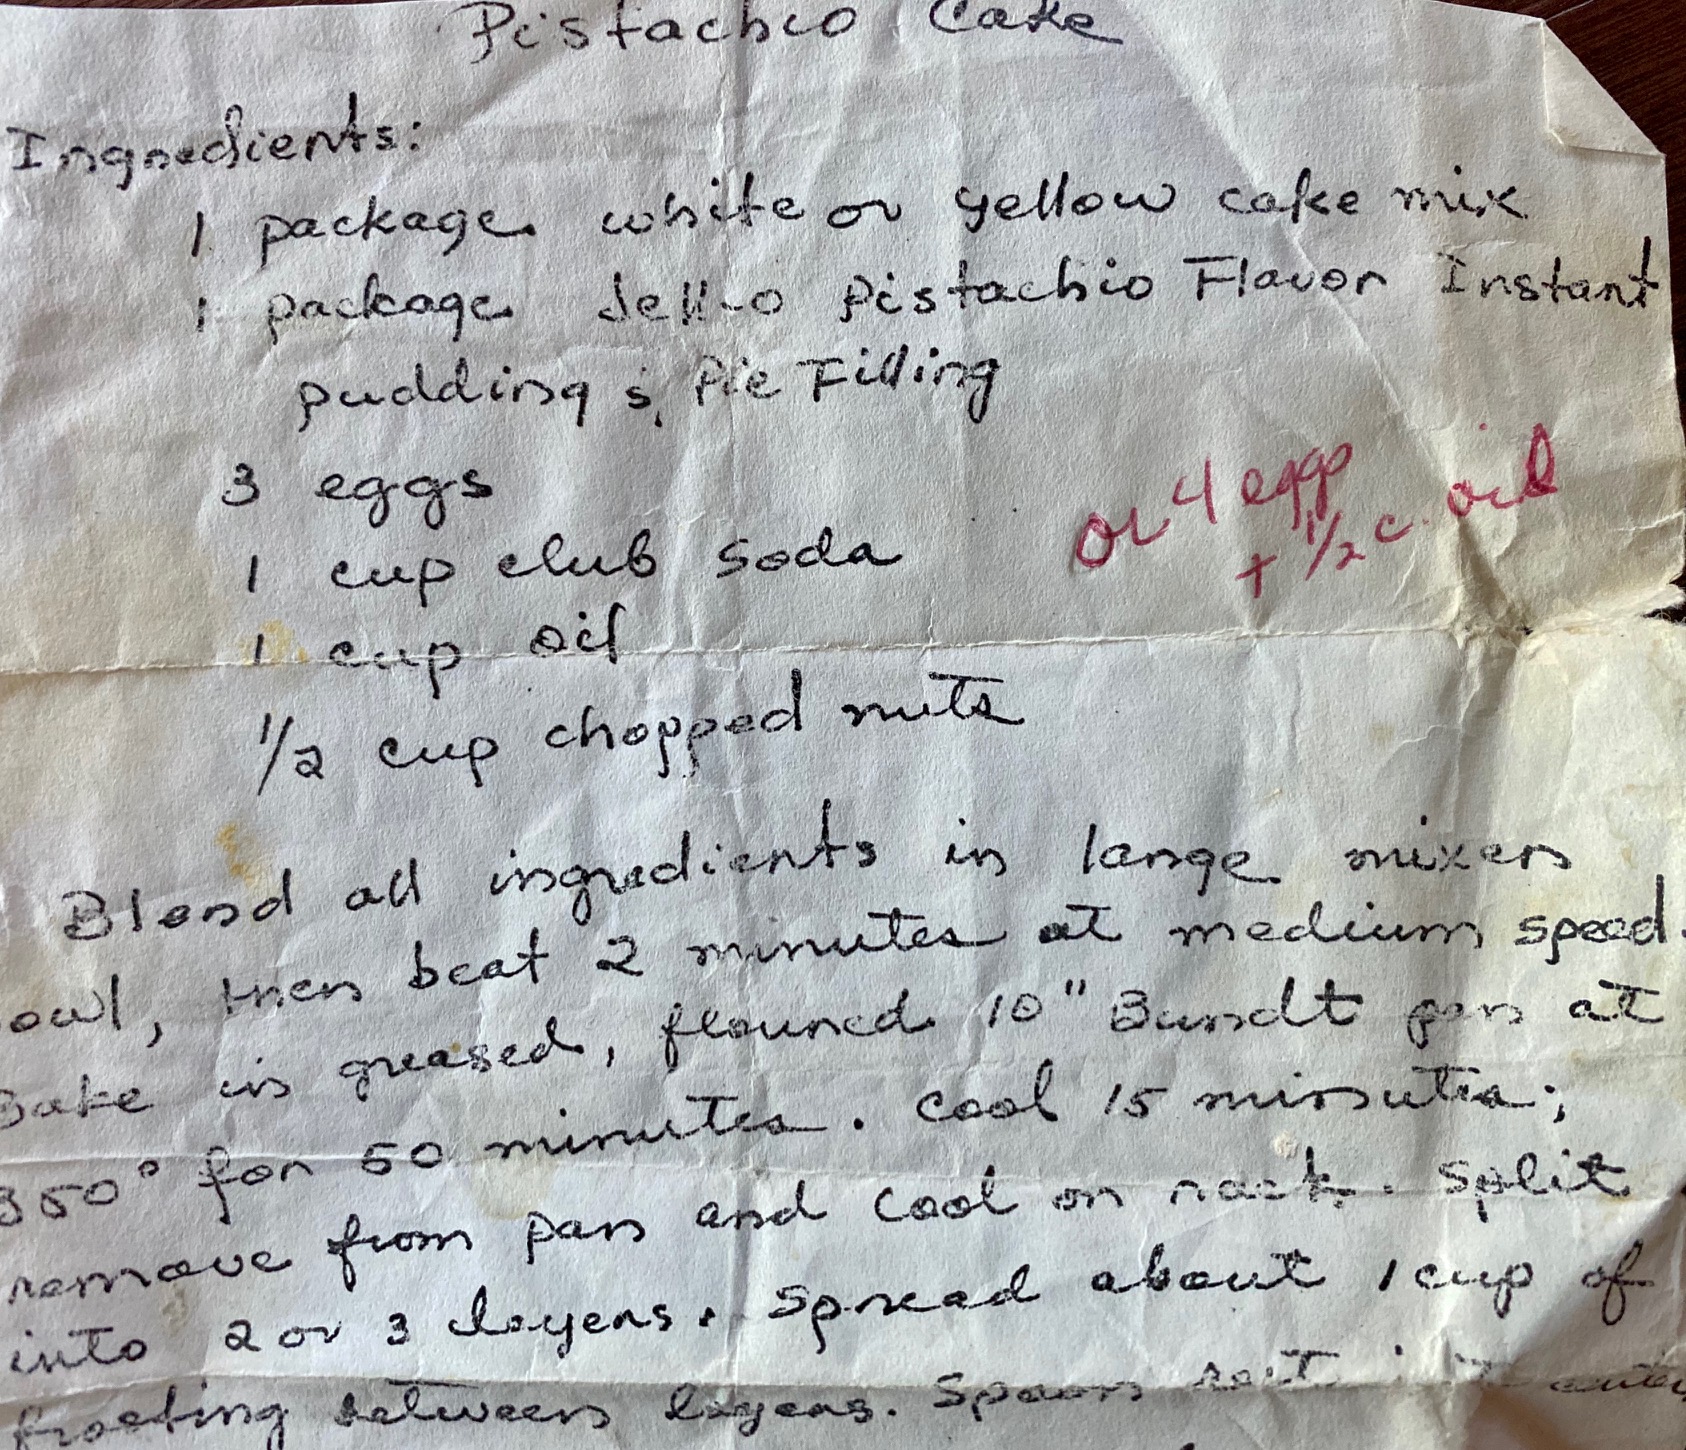 Pistachio Cake
Ingredients:
1 package white or yellow cake mix
1 package Jell-o Pistachio Flavor Instant
pudding & Pie Filling
3 eggs
or 4 eggs
+ 1/2 c. oil
1 cup club soda
1 cup oil
1/2 cup chopped nuts
Blend all ingredients in large mixers
owl, then beat 2 minutes at medium speed.
Bake in greased, floured 10" Bundt pan at
350° for 50 minutes. Cool 15 minutes;
remove from pan and cool on rack. Split
into 2 or 3 layers. Spread about 1 cup of
frosting between layers. Spoon rest